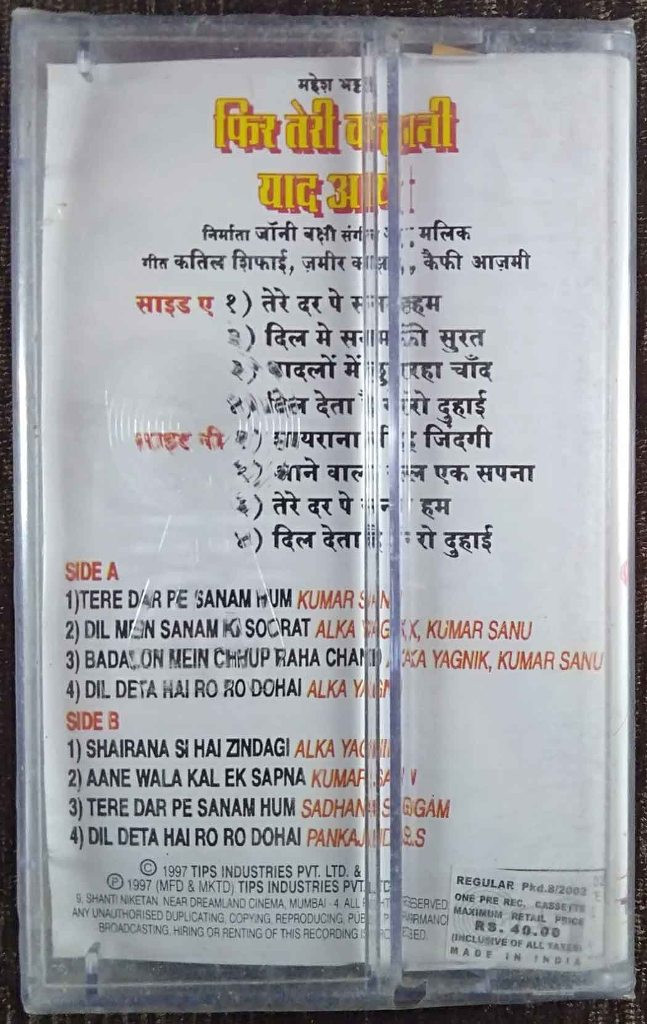 महेश भट्ट
फिर तेरी कहानी
याद आयी
निर्माता जॉनी बक्षी संगीत अनु मलिक
गीत कतिल शिफाई, ज़मीर काज़मी, कैफी आज़मी
साइड ए १) तेरे दर पे सनम हम
२) दिल मे सनम की सुरत
३) बादलों में छुप रहा चाँद
४) दिल देता है रो रो दुहाई
साइड बी १) शायराना सी है जिंदगी
२) आने वाला कल एक सपना
३) तेरे दर पे सनम हम
४) दिल देता है रो रो दुहाई
SIDE A
1)TERE DAR PE SANAM HUM KUMAR SANU
2) DIL MEIN SANAM KI SOORAT ALKA YAGNIK, KUMAR SANU
3) BADALON MEIN CHHUP RAHA CHAND ALKA YAGNIK, KUMAR SANU
4) DIL DETA HAI RO RO DOHAI ALKA YAGNIK
SIDE B
1) SHAIRANA SI HAI ZINDAGI ALKA YAGNIK
2) AANE WALA KAL EK SAPNA KUMAR SANU
3) TERE DAR PE SANAM HUM SADHANA SARGAM
4) DIL DETA HAI RO RO DOHAI PANKAJ UDHAS
© 1997 TIPS INDUSTRIES PVT. LTD. &
℗ 1997 (MFD & MKTD) TIPS INDUSTRIES PVT. LTD.
9, SHANTI NIKETAN, NEAR DREAMLAND CINEMA, MUMBAI - 4. ALL RIGHTS RESERVED.
ANY UNAUTHORISED DUPLICATING, COPYING, REPRODUCING, PUBLIC PERFORMANCE
BROADCASTING, HIRING OR RENTING OF THIS RECORDING IS PROHIBITED.
REGULAR Pkd.8/2003
ONE PRE REC. CASSETTE
MAXIMUM RETAIL PRICE
RS. 40.00
(INCLUSIVE OF ALL TAXES)
MADE IN INDIA